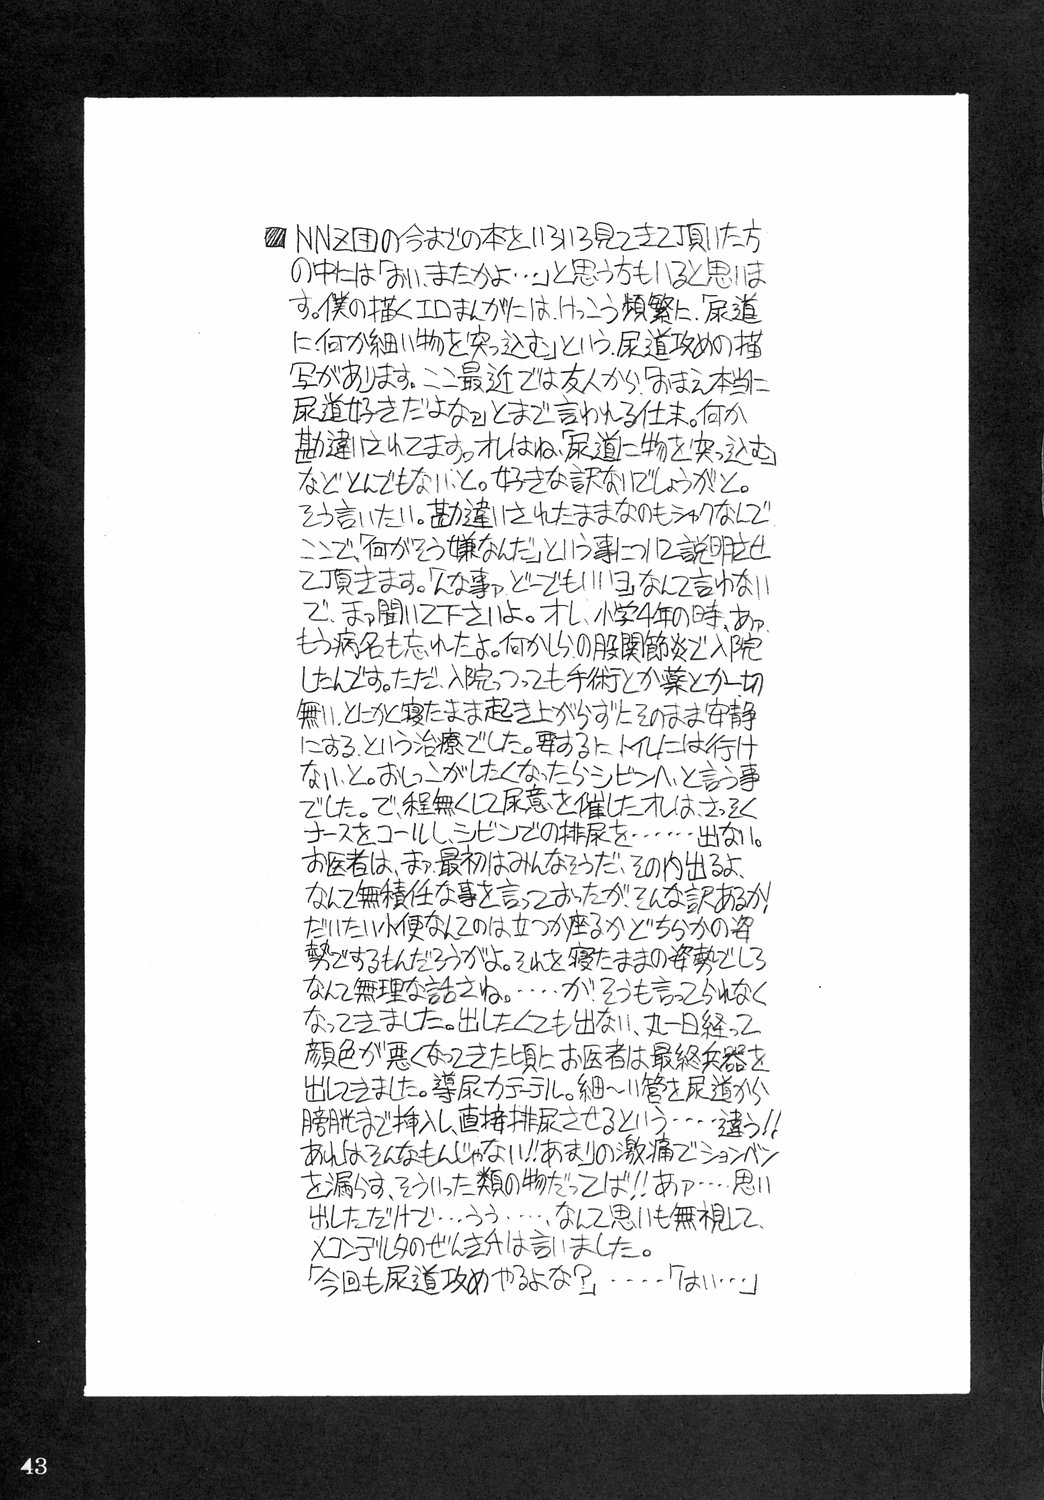 ■NNZ団の今までの本をいろいろ見てきて頂いた方
の中には「おい、またかよ…」と思う方もいると思いま
す。僕の描くエロまんがには、けっこう頻繁に、「尿道
に、何か細い物を突っ込む」という、尿道攻めの描
写があります。ここ最近では友人から、「おまえ本当に
尿道好きだよなァ」とまで言われる仕末。何か
勘違いされてます。オレはね、「尿道に物を突っ込む」
などとんでもない、と。好きな訳ないでしょうがと。
そう言いたい。勘違いされたままなのもシャクなんで
ここで、「何がそう嫌なんだ」という事について説明させ
て頂きます。「んな事ァ、どーでもいいヨ」なんて言わない
で、まァ聞いて下さいよ。オレ、小学4年の時、あァ、
もう病名も忘れたよ。何かしらの股関節炎で入院
したんです。ただ、入院っつっても手術とか薬とか一切
無い、とにかく寝たまま起き上がらずにそのまま安静
にする、という治療でした。要するに、トイレには行け
ない、と。おしっこがしたくなったらシビンへ、と言う事
でした。で、程無くして尿意を催したオレは、さっそく
ナースをコールし、シビンでの排尿を……出ない。
お医者は、まァ、最初はみんなそうだ、その内出るよ、
なんて無責任な事を言っておったが、そんな訳あるか!
だいたい小便なんてのは立つか座るかどちらかの姿
勢でするもんだろうがよ。それを寝たままの姿勢でしろ
なんて無理な話さね。‥‥が、そうも言ってられなく
なってきました。出したくても出ない、丸一日経って
顔色が悪くなってきた頃に、お医者は最終兵器を
出してきました。導尿カテーテル。細〜い管を尿道から
膀胱まで挿入し、直接排尿させるという‥‥違う!!
あれはそんなもんじゃない!!あまりの激痛でションベン
を漏らす、そういった類の物だってば!!あァ‥‥思い
出しただけで…うぅ‥‥、なんて思いも無視して、
メコンデルタのぜんきチは言いました。
「今回も尿道攻めやるよな?」‥‥‥「はい…」
43